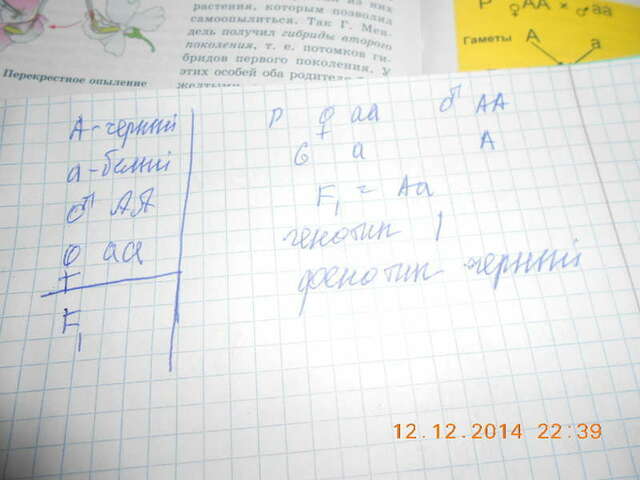 растения, которым позволил
самоопылиться. Так Г. Мен-
дель получил гибриды второго
поколения, т. е. потомков ги-
бридов первого поколения. У
этих особей оба родителя
желтыми
Перекрестное опыление
P ♀AA × ♂aa
Гаметы A a
A - черный
a - белый
♂ AA
♀ aa
F₁
P ♀ aa ♂ AA
G a A
F₁ = Aa
генотип 1
фенотип черный
12.12.2014 22:39